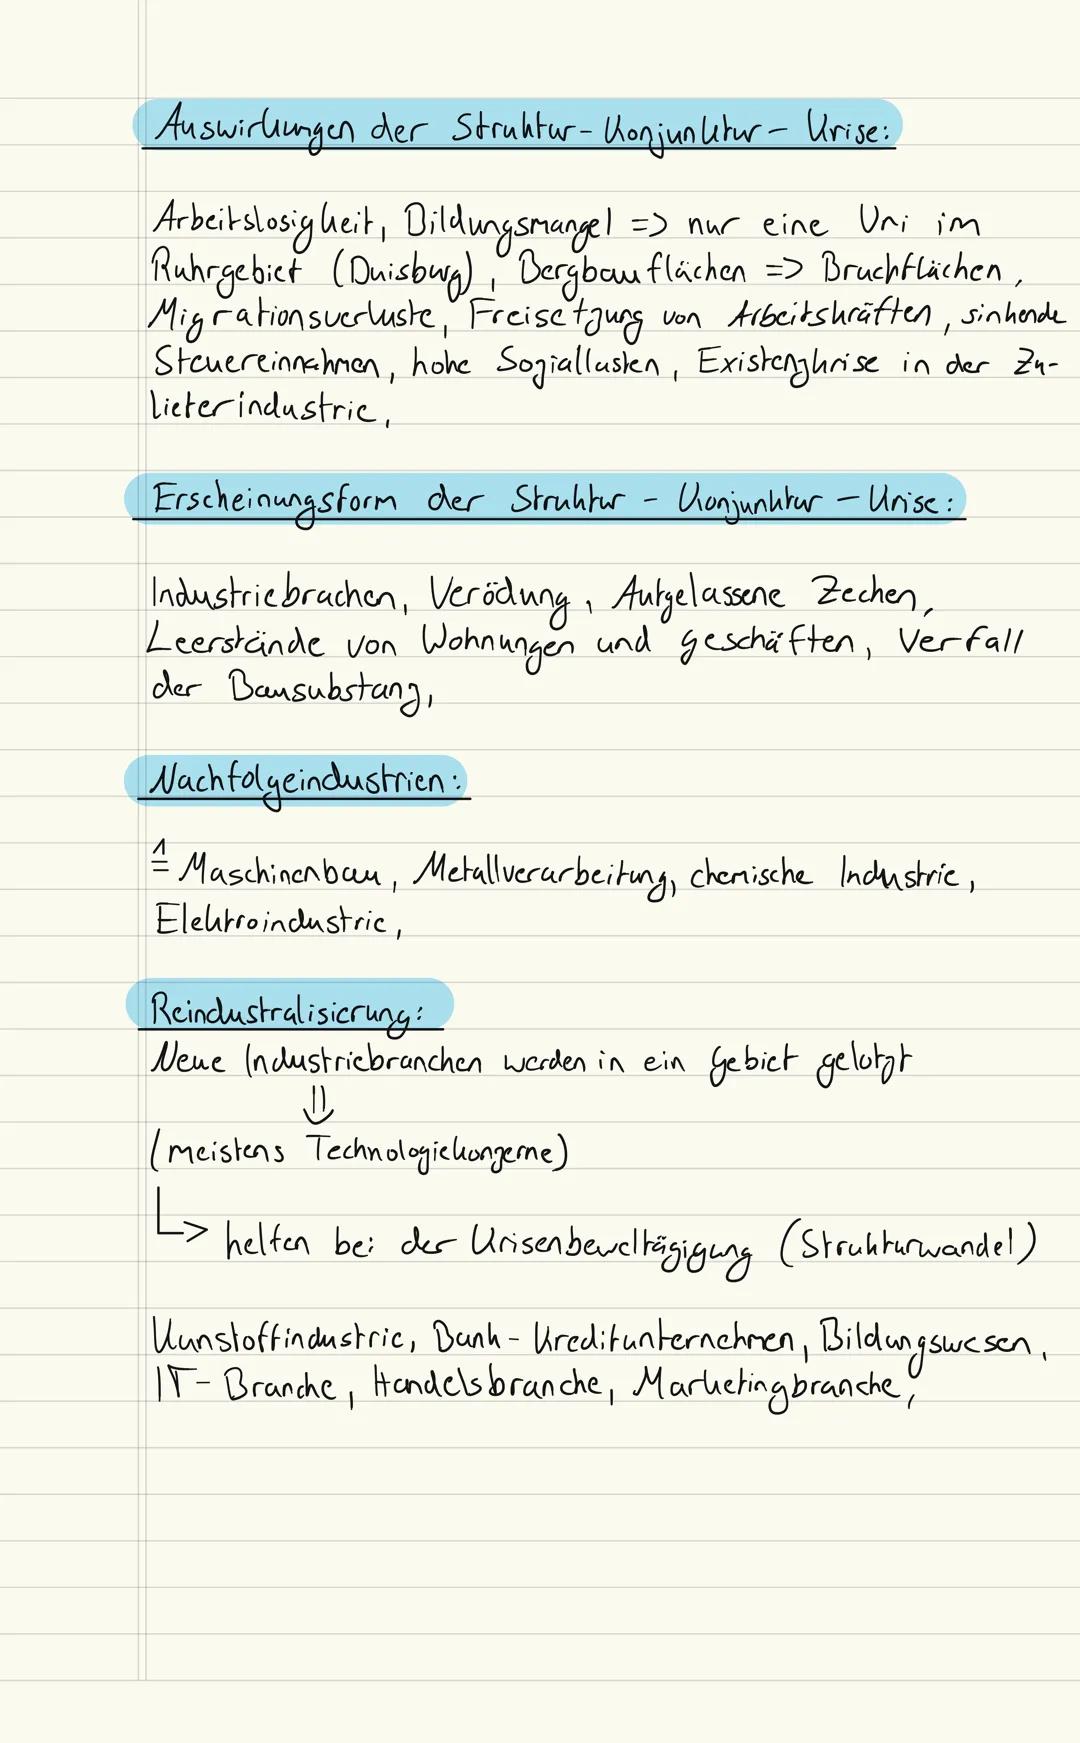 Auswirkungen der Struktur-Konjunktur-Krise:
Arbeitslosigkeit, Bildungsmangel => nur eine Uni im
Ruhrgebiet (Duisburg), Bergbauflächen => Bruchflächen,
Migrationsverluste, Freisetzung von Arbeitskräften, sinkende
Steuereinnahmen, hohe Soziallasten, Existenzkrise in der Zu-
lieferindustrie,
Erscheinungsform der Struktur - Konjunktur - Krise:
Industriebrachen, Verödung, Aufgelassene Zechen,
Leerstände von Wohnungen und geschäften, Verfall
der Bausubstanz,
Nachfolgeindustrien:
≙ Maschinenbau, Metallverarbeitung, chemische Industrie,
Elektroindustrie,
Reindustralisierung:
Neue Industriebranchen werden in ein Gebiet gelotzt
⇓
(meistens Technologiekonzerne)
↳ helfen bei der Krisenbewältägigung (Strukturwandel)
Kunstoffindustrie, Bank-Kreditunternehmen, Bildungswesen,
IT-Branche, Handelsbranche, Marketingbranche,